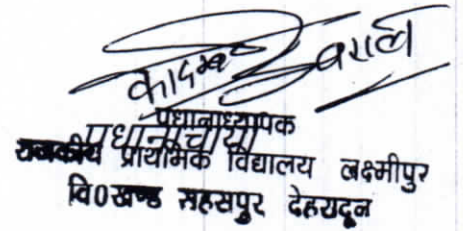 प्रधानाध्यापक
प्रधानाचार्या
राजकीय प्राथमिक विद्यालय लक्ष्मीपुर
वि0खण्ड सहसपुर देहरादून